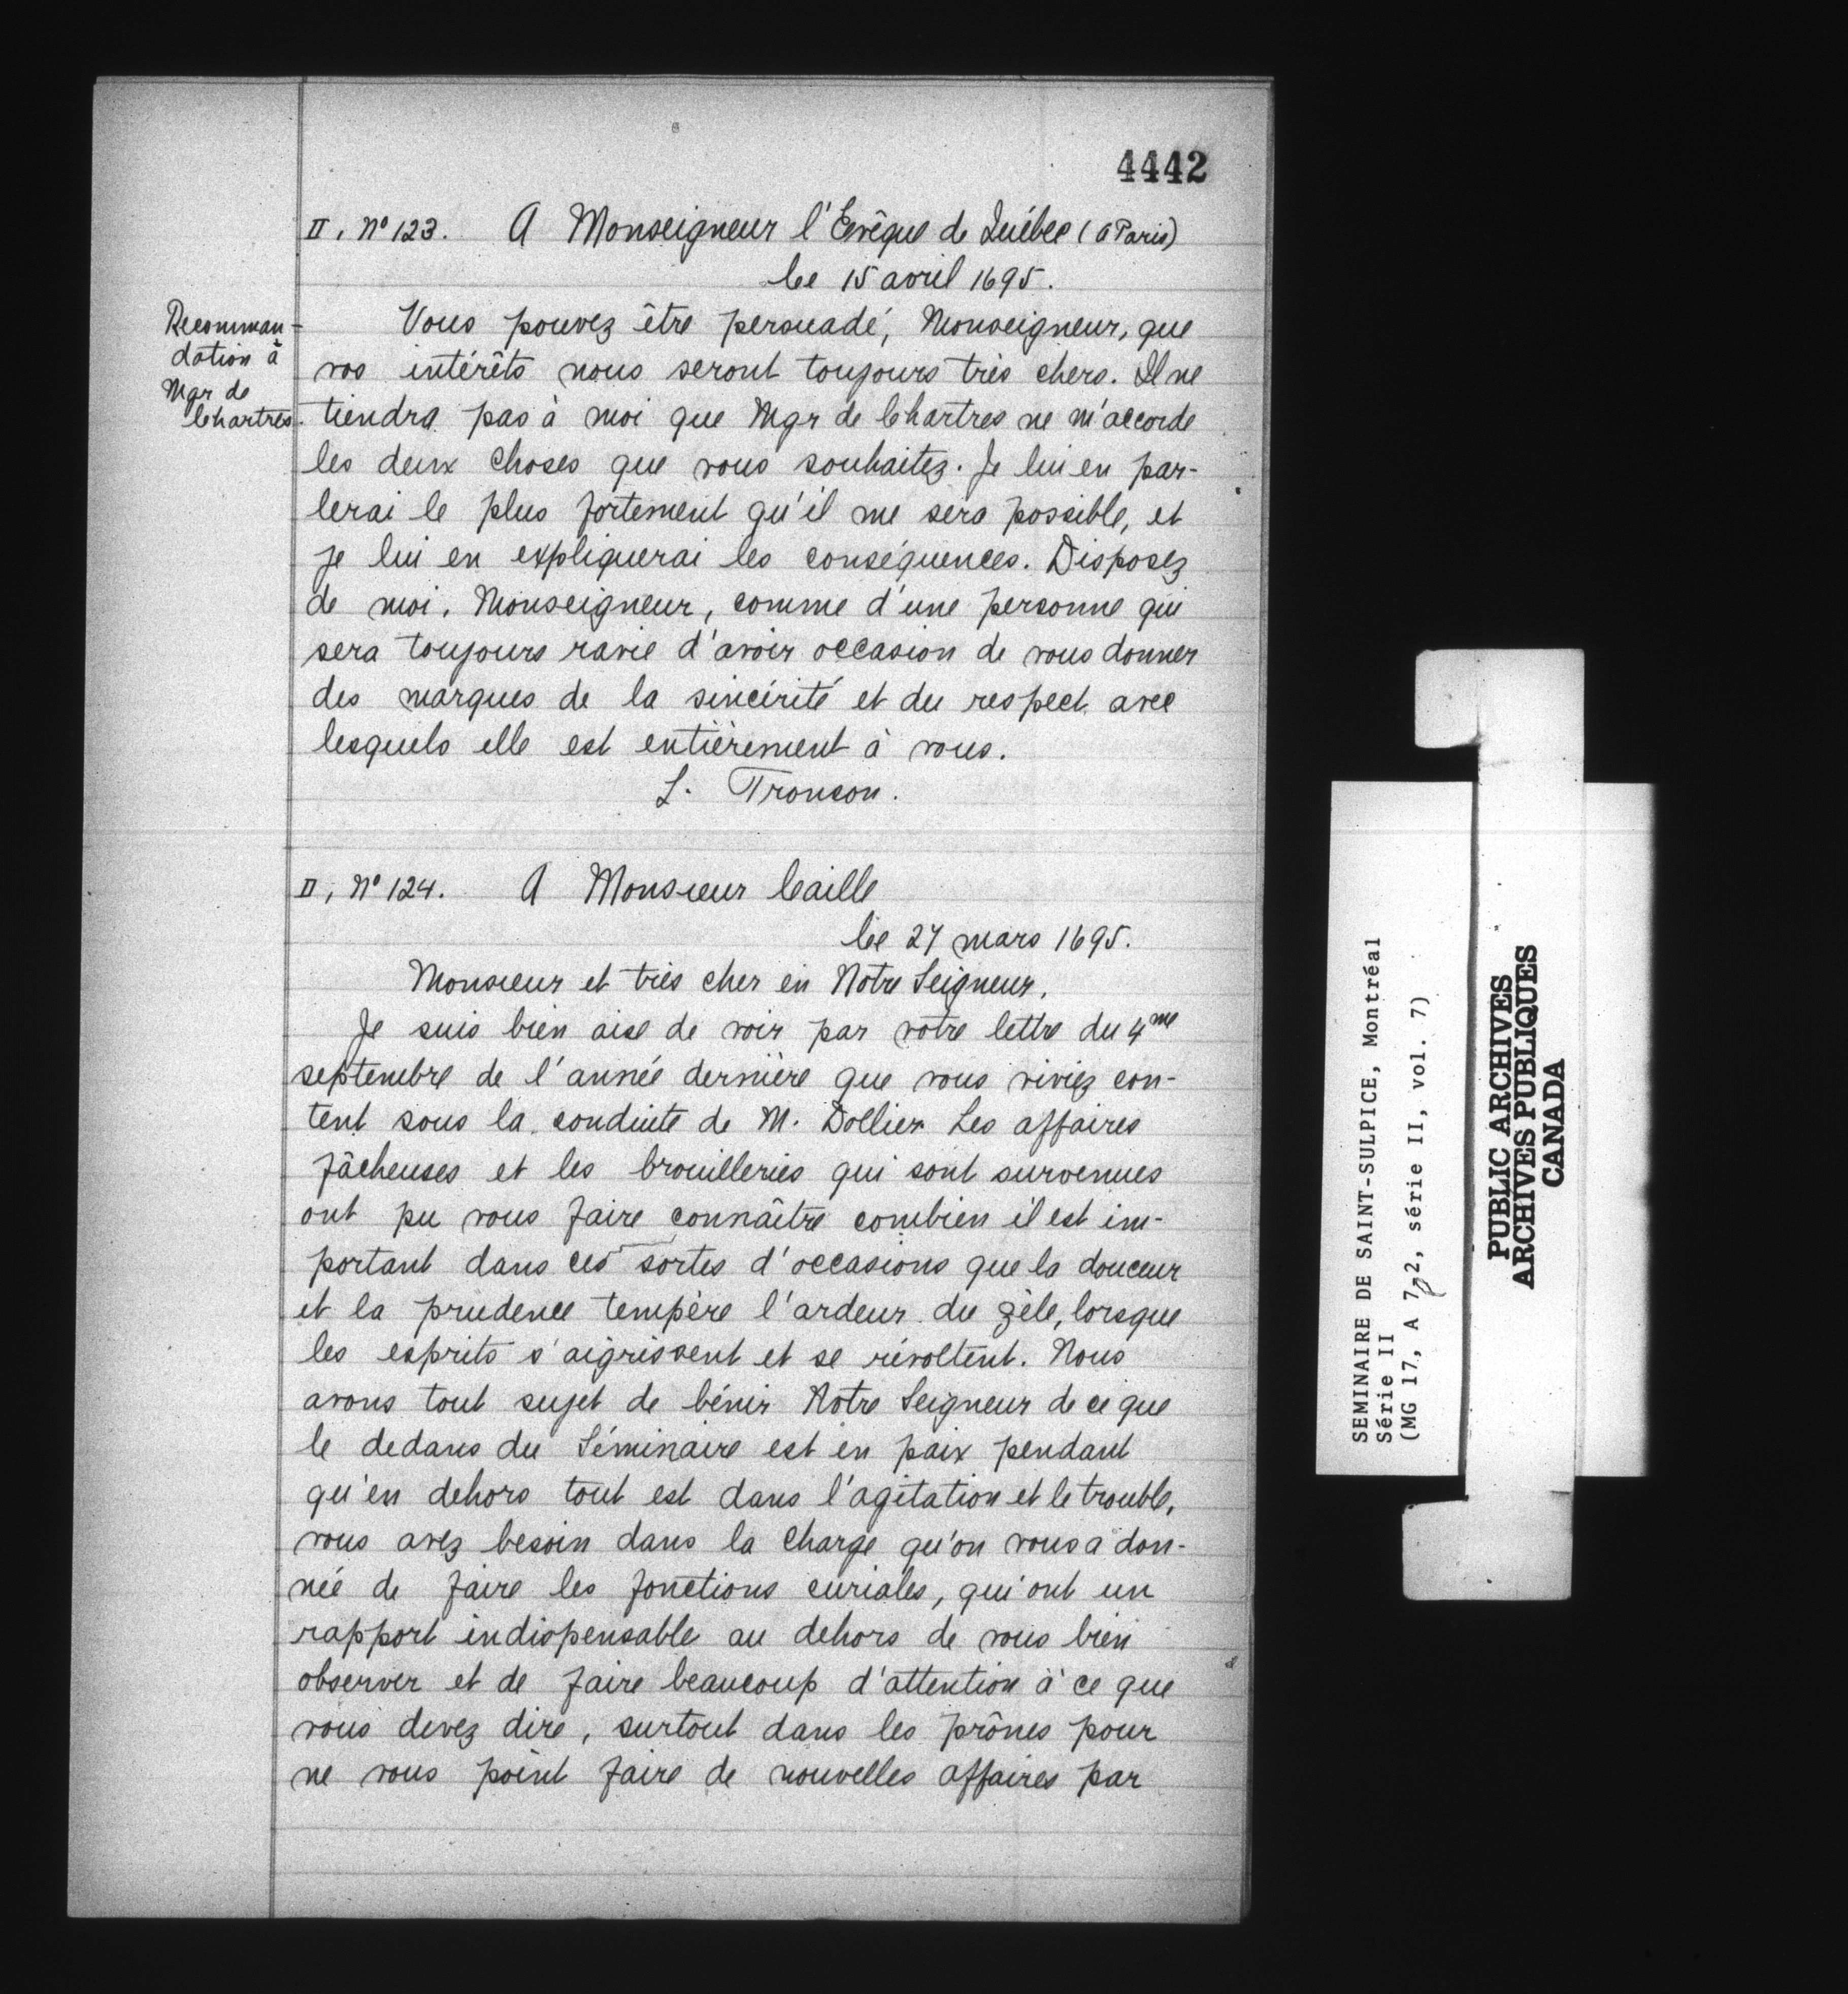 4442
II, No 123. A Monseigneur l'Evêque de Québec (à Paris)
Ce 15 avril 1695.
Recomman-
dation à
Mgr de
Chartres.
Vous pouvez être persuadé, Monseigneur, que
vos intérêts nous seront toujours très chers. Il ne
tiendra pas à moi que Mgr de Chartres ne m'accorde
les deux choses que vous souhaitez. Je lui en par-
lerai le plus fortement qu'il me sera possible, et
je lui en expliquerai les conséquences. Disposez
de moi, Monseigneur, comme d'une personne qui
sera toujours ravie d'avoir occasion de vous donner
des marques de la sincérité et du respect avec
lesquels elle est entièrement à vous.
L. Tronson.
II, No 124. A Monsieur Caille
Ce 27 mars 1695.
Monsieur et très cher en Notre Seigneur,
Je suis bien aise de voir par votre lettre du 4me
septembre de l'année dernière que vous viviez con-
tent sous la conduite de M. Dollier. Les affaires
fâcheuses et les brouilleries qui sont survenues
ont pu vous faire connaître combien il est im-
portant dans ces sortes d'occasions que la douceur
et la prudence tempère l'ardeur du zèle, lorsque
les esprits s'aigrissent et se révoltent. Nous
avons tout sujet de bénir Notre Seigneur de ce que
le dedans du Séminaire est en paix pendant
qu'en dehors tout est dans l'agitation et le trouble,
vous avez besoin dans la charge qu'on vous a don-
née de faire les fonctions curiales, qui ont un
rapport indispensable au dehors de vous bien
observer et de faire beaucoup d'attention à ce que
vous devez dire, surtout dans les prônes pour
ne vous point faire de nouvelles affaires par
SEMINAIRE DE SAINT-SULPICE, Montréal
Série II
(MG 17, A 7-2, série II, vol. 7)
PUBLIC ARCHIVES
ARCHIVES PUBLIQUES
CANADA